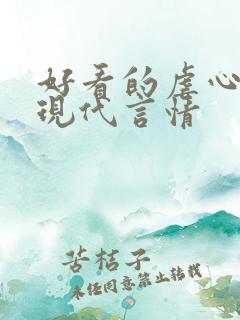 好看的虐心
現代言情
苦桔子
未经同意禁止转载